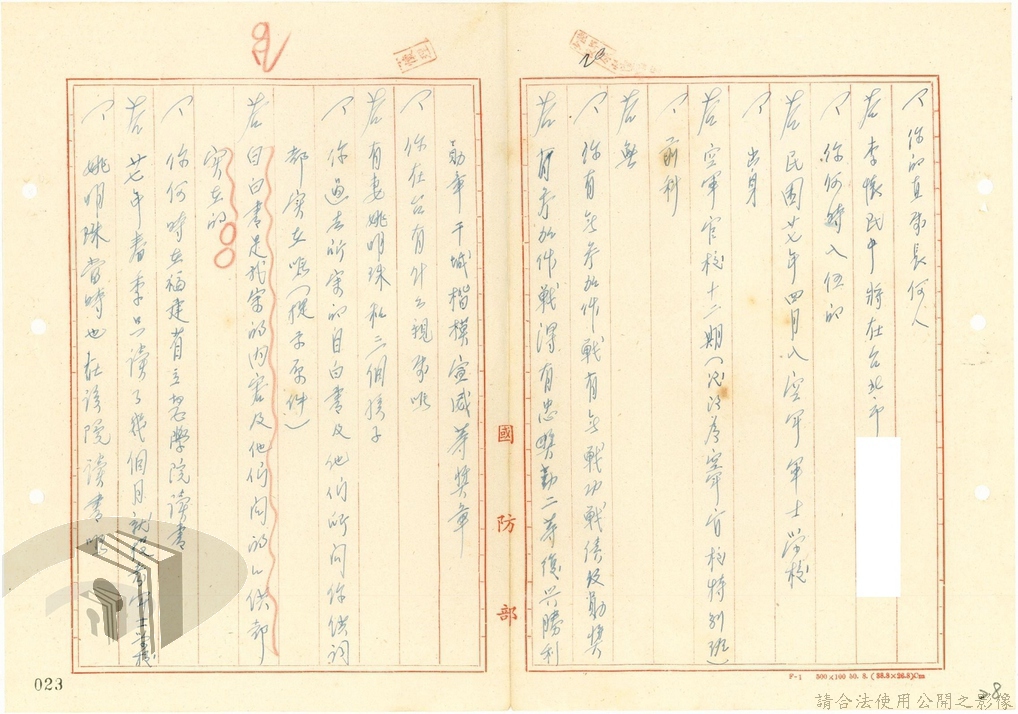 你的直屬長何人
答 李懷民中將在台北市
你何時入伍的
答 民國廿七年四月入空軍軍士學校
出身
答 空軍官校十二期(後改為空軍官校特別班)
前科
答 無
你有無參加作戰有無戰功戰績及勛獎
答 有參加作戰得有忠勤二等復興勝利
勛章干城楷模宣威等獎章
你在台有什么親屬
答 有妻姚明珠和二個孩子
你過去所寫的自白書及他們所問你供詞
都實在嗎(提示原件)
答 自白書是我寫的內容及他們問的口供都
實在的
你何時在福建省立醫學院讀書
答 廿七年春季只讀了幾個月就投考軍士學校
姚明珠當時也在該院讀書嗎
國防部
F-1 500×100 50. 8. (38.3×26.8)Cm
023
28
請合法使用公開之影像